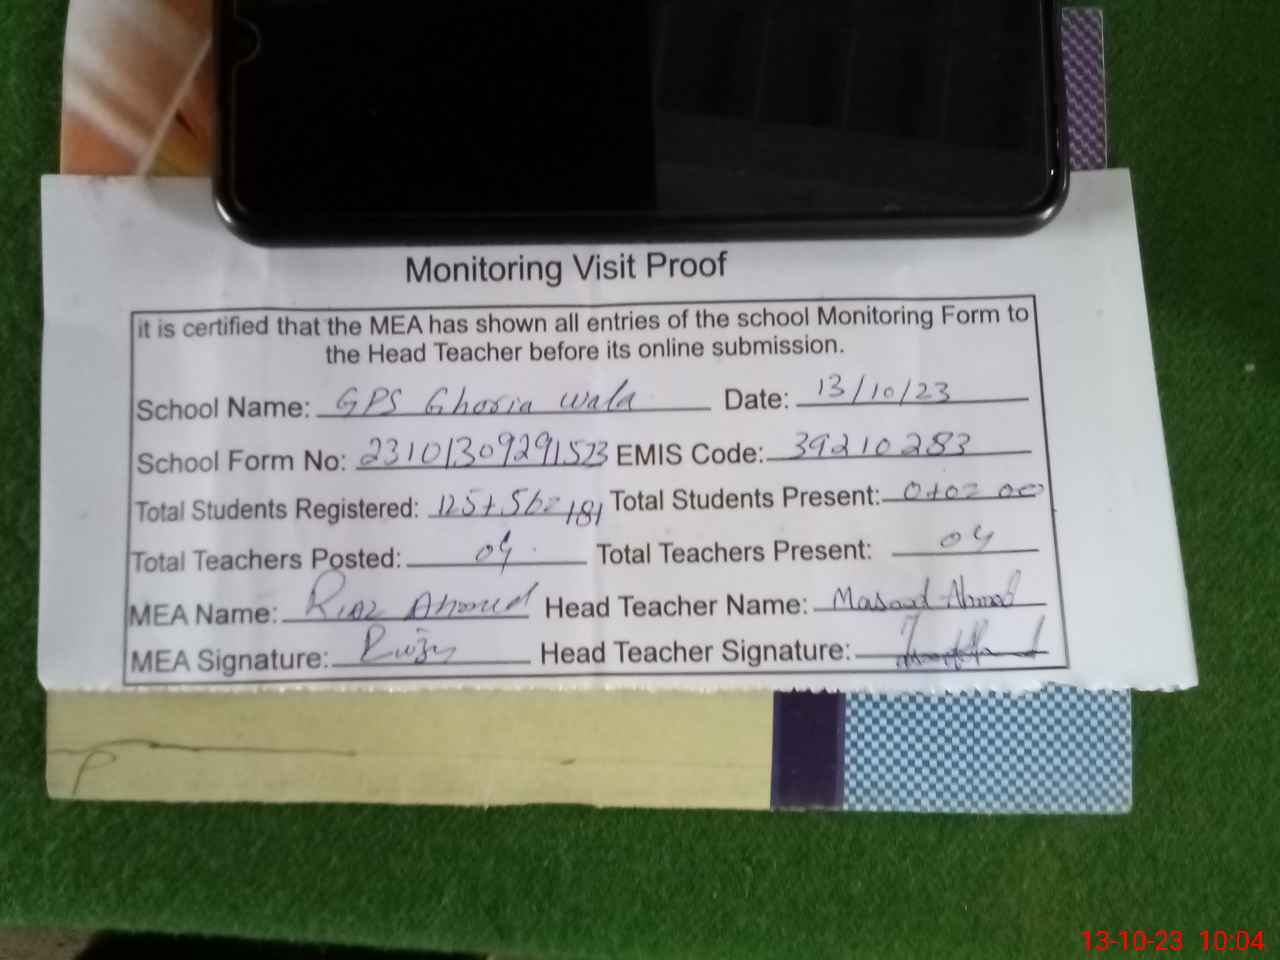 Monitoring Visit Proof
it is certified that the MEA has shown all entries of the school Monitoring Form to
the Head Teacher before its online submission.
School Name: GPS Ghosia Wala Date: 13/10/23
School Form No: 23101309291523 EMIS Code: 39210283
Total Students Registered: 125+56=181 Total Students Present: 0+0=00
Total Teachers Posted: 04 Total Teachers Present: 04
MEA Name: Riaz Ahmed Head Teacher Name: Masood Ahmad
MEA Signature: Head Teacher Signature:
13-10-23 10:04